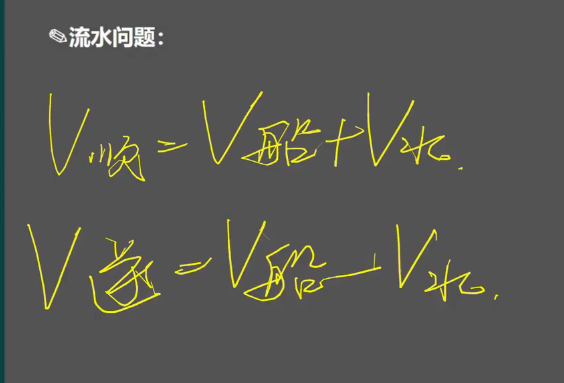 ✎流水问题：
V顺=V船+V水.
V逆=V船-V水.